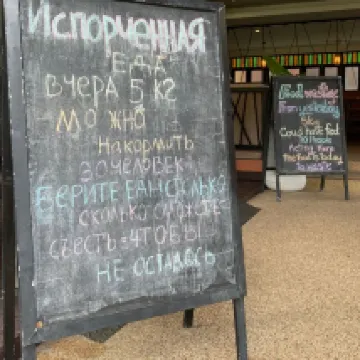 Испорченная
ЕДА
вчера 5 кг
можно
накормить
30 человек
БЕРИТЕ ЕДЫ СКОЛЬКО
СКОЛЬКО СМОЖЕТЕ
СЪЕСТЬ=ЧТОБЫ
НЕ ОСТАЛОСЬ
Food waste
From yesterday
5kg
Could have fed
30 People